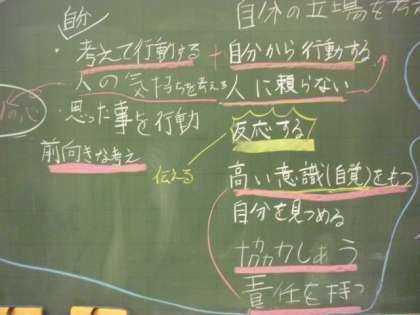 自分
・考えて行動する
人の気持ちを考える
・思った事を行動
前向きな考え
の心
伝える
自分の立場を考
+自分から行動する
人に頼らない
反応する!
高い意識(自覚)をもつ
自分を見つめる
協力しあう
責任を持つ